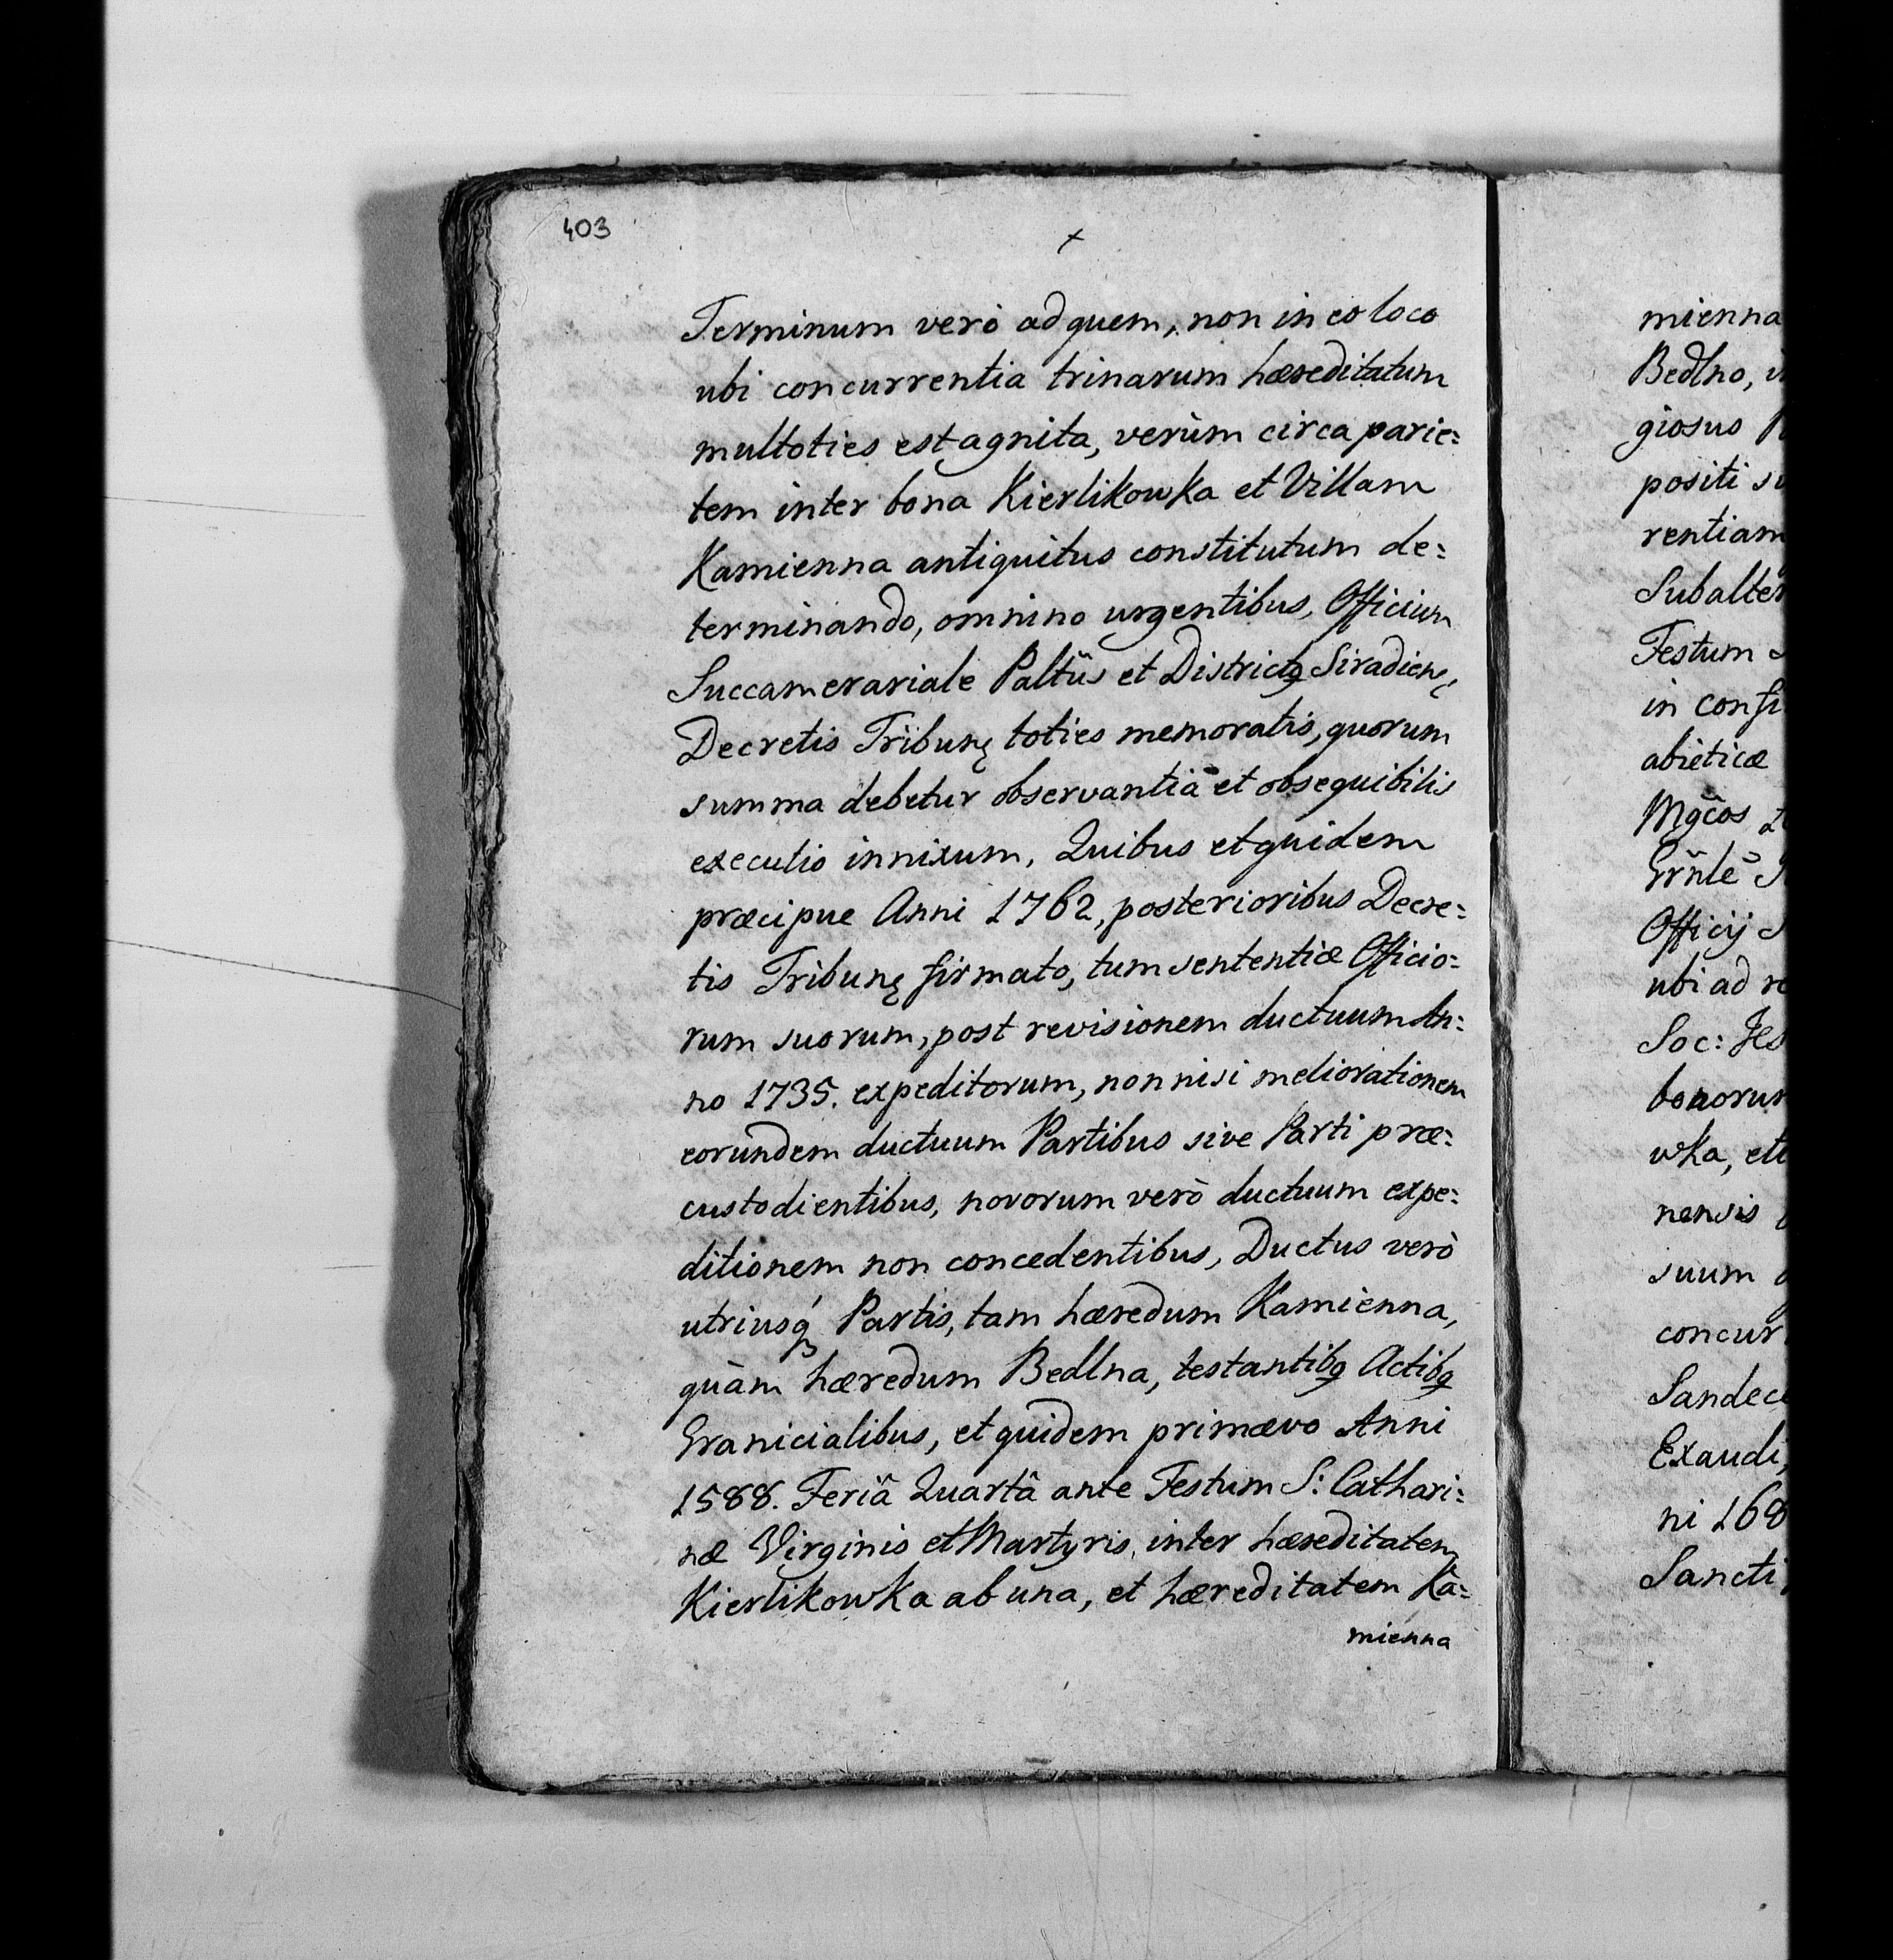 403
+
Terminum verò ad quem, non in eo loco
ubi concurrentia trinarum hæreditatum
multoties est agnita, verùm circa parie:
tem inter bona Kierlikowka et Villam
Kamienna antiquitus constitutum de:
terminando, omnino urgentibus, Officium
Succamerariale Paltũs et Districtq Siradien,
Decretis Tribunę toties memoratis, quorum
summa debetur observantia et obsequibilis
executio innixum, Quibus et quidem
præcipue Anni 1762, posterioribus Decre:
tis Tribunę firmato, tum sententiæ Officio:
rum suorum, post revisionem ductuum An:
no 1735. expeditorum, non nisi meliorationem
eorundem ductuum Partibus sive Parti præ:
custodientibus, novorum verò ductuum expe:
ditionem non concedentibus, Ductus verò
utriusq́ Partis, tam hæredum Kamienna,
quàm hæredum Bedlna, testantibq Actibq
Granicialibus, et quidem primævo Anni
1588. Feriâ Quartâ ante Festum S: Cathari:
næ Virginis et Martyris, inter hæreditatem
Kierlikowka ab una, et hæreditatem Ka:
mienna
mienna
Bedlno,
giosus
positi
rentiam
Subalter
Festum
in confi
abieticæ
Mgc̃os
Grñlẽ
Officij
ubi ad
Soc: Jes
bonorum
wka, ett
nensis
suum
concur
Sandece
Exaudi,
ni 168
Sancti